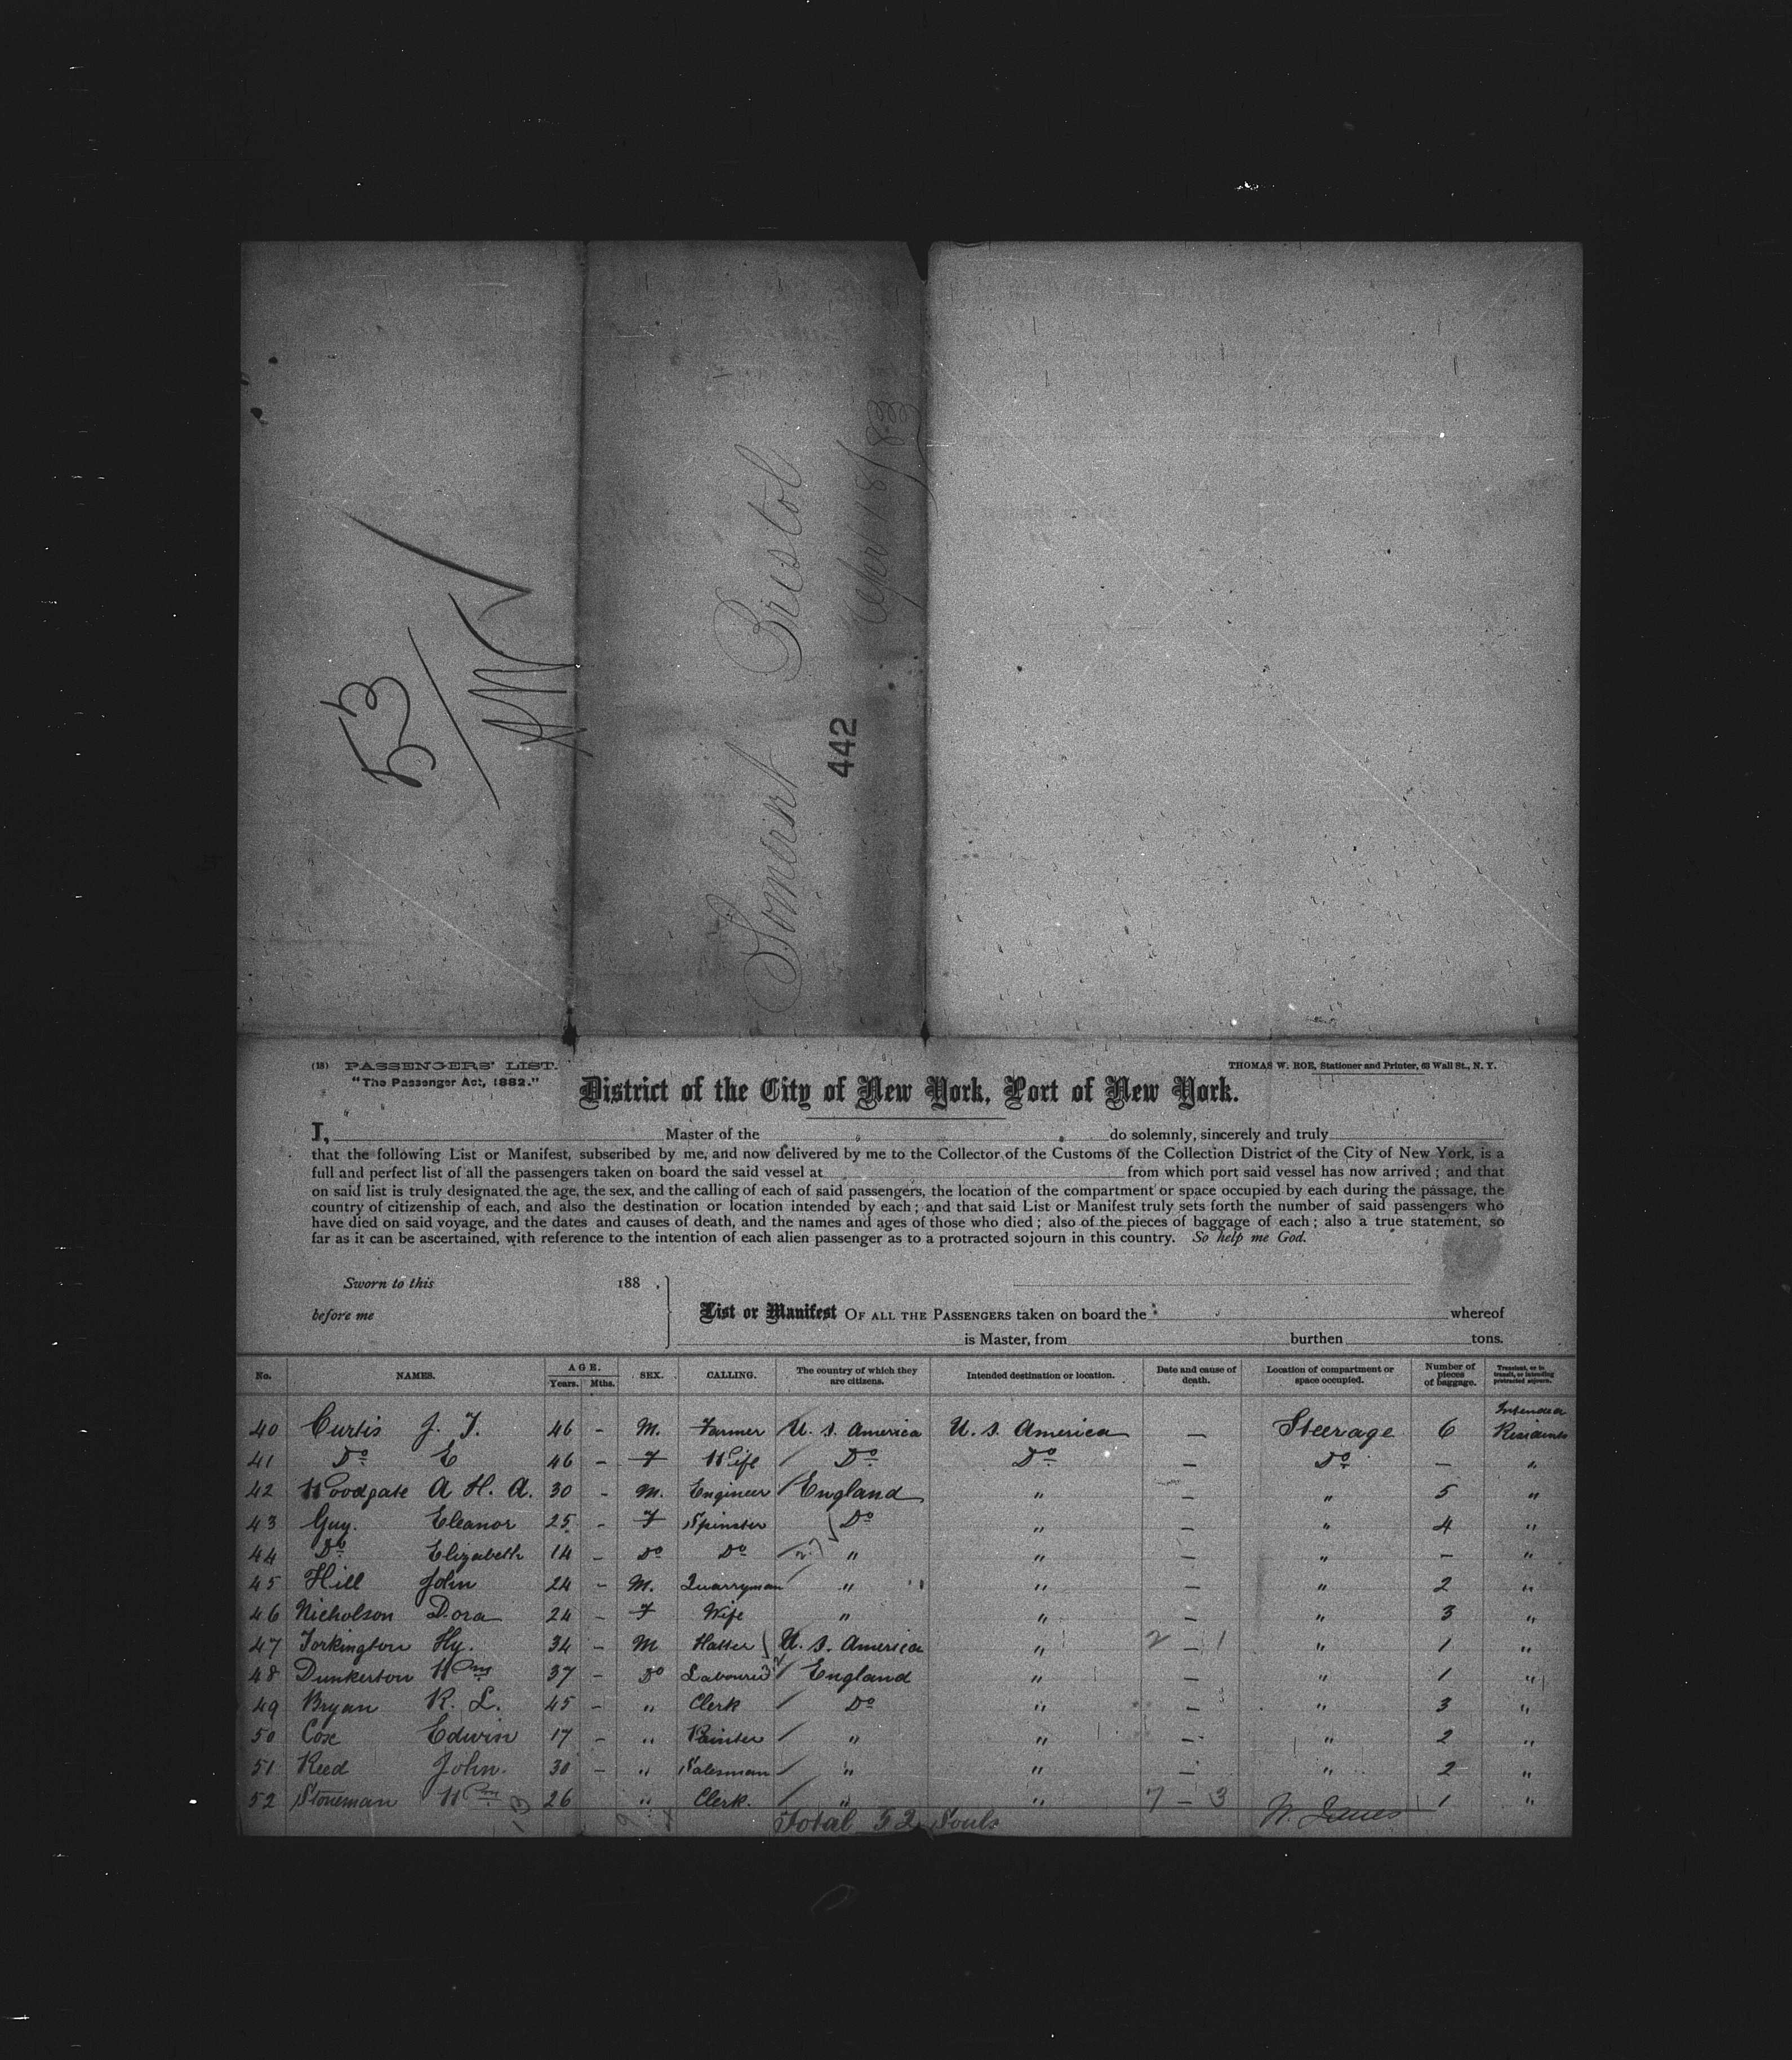 53
Somerset Bristol
442
Apr 18/83
(18) PASSENGERS' LIST.
"The Passenger Act, 1882."
THOMAS W. ROE, Stationer and Printer, 63 Wall St., N. Y.
District of the City of New York, Port of New York.
I, Master of the do solemnly, sincerely and truly
that the following List or Manifest, subscribed by me, and now delivered by me to the Collector of the Customs of the Collection District of the City of New York, is a
full and perfect list of all the passengers taken on board the said vessel at from which port said vessel has now arrived; and that
on said list is truly designated the age, the sex, and the calling of each of said passengers, the location of the compartment or space occupied by each during the passage, the
country of citizenship of each, and also the destination or location intended by each; and that said List or Manifest truly sets forth the number of said passengers who
have died on said voyage, and the dates and causes of death, and the names and ages of those who died; also of the pieces of baggage of each; also a true statement, so
far as it can be ascertained, with reference to the intention of each alien passenger as to a protracted sojourn in this country. So help me God.
Sworn to this 188 .
before me
List or Manifest OF ALL THE PASSENGERS taken on board the whereof
is Master, from burthen tons.
No. NAMES. AGE. Years. Mths. SEX. CALLING. The country of which they are citizens. Intended destination or location. Date and cause of death. Location of compartment or space occupied. Number of pieces of baggage. Transient, or in transit, or intending protracted sojourn.
40 Curtis J. T. 46 - M. Farmer U. S. America U. S. America - Steerage 6 Intended Residents
41 Do E 46 - F Wife Do Do - Do - "
42 Woodgate A H. A. 30 - M. Engineer England " - " 5 "
43 Guy. Eleanor 25 - F Spinster Do " - " 4 "
44 Do Elizabeth 14 - Do Do " " - " - "
45 Hill John 24 - M. Quarryman " " - " 2 "
46 Nicholson Dora 24 - F Wife " " - " 3 "
47 Torkington Hy. 34 - M Hatter U. S. America " 2 - 1 " 1 "
48 Dunkerton Wm 37 - Do Labourer England " - " 1 "
49 Bryan R. L. 45 - " Clerk Do " - " 3 "
50 Cox Edwin 17 - " Painter " " - " 2 "
51 Reed John. 30 - " Salesman " " - " 2 "
52 Stoneman Wm 26 " Clerk. " " 7 - 3 1 "
Total 52 Souls